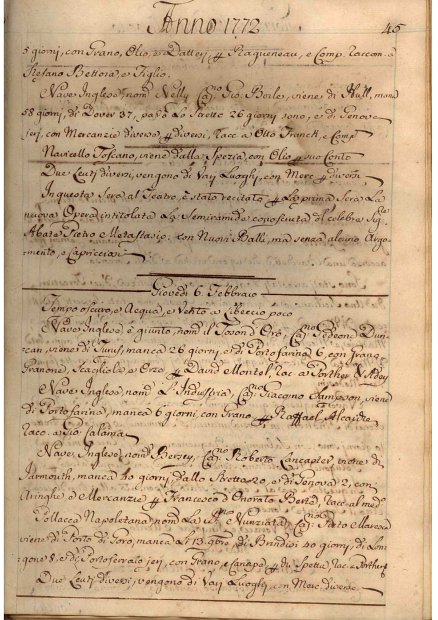 Anno 1772
46
5 giorni, con Grano, Olio, e Datteri, p Ragueneau, e Comp. Raccom. a
Stefano Bettora, e Figlio.
Nave Inglese, nom. Nelly, Cap.no Gio. Boile, viene di Hull, manca
58 giorni, di Dover 37, passò Lo Stretto 26 giorni sono, e di Genova
jeri, con Mercanzie diverse, p diversi, Racc. a Otto Franck, e Comp.
Navicello Toscano, viene dalla Spezia, con Olio p suo Conto
Due Leuti diversi, vengono di Varj Luoghi, con Merc. p diversi
In questa Sera al Teatro, è stata recitata p La prima Sera La
nuova Opera intitolata La Semiramide conosciuta del celebre Sig.re
Abate Pietro Metastasio, con Nuovi Balli, ma senza alcuno Argo-
mento, e Capricciosi
Giovedì 6 Febbraio
Tempo oscuro, e Acqua, e Vento a Libeccio poco
Nave Inglese è giunta, nom. il Toson d'Oro, Cap.no Gedeon Dun-
can, viene di Tunis, manca 26 giorni, e di Portofarina 6, con Grano,
Granone, Scagliola, e Orzo p David Montel, Rac. a Porther
e Nave Inglese, nom. L'Industria, Cap.no Giacomo Sampson, viene
di Portofarina, manca 6 giorni, con Grano p Raffael Alcaidre
Racc. a Gio. Calania
Nave, Inglese, nom. Bersey, Cap.no Roberto Lancaster, viene di
Jarmouth, manca 40 giorni, dallo Stretto 20, e di Genova 2, con
Aringhe e Mercanzie p Francesco d'Onorato Berte, Racc. al med.o
Pollacca Napoletana, nom. La Nunziata, Cap.
viene di Porto di Goro, manca Li 13. 9bre, di Brindisi 40 giorni, di Lon-
gone 8, e di Portoferraio jeri, con Grano, e Canapa p
Due Leuti diversi, vengono di Varj Luoghi con Merc. diverse